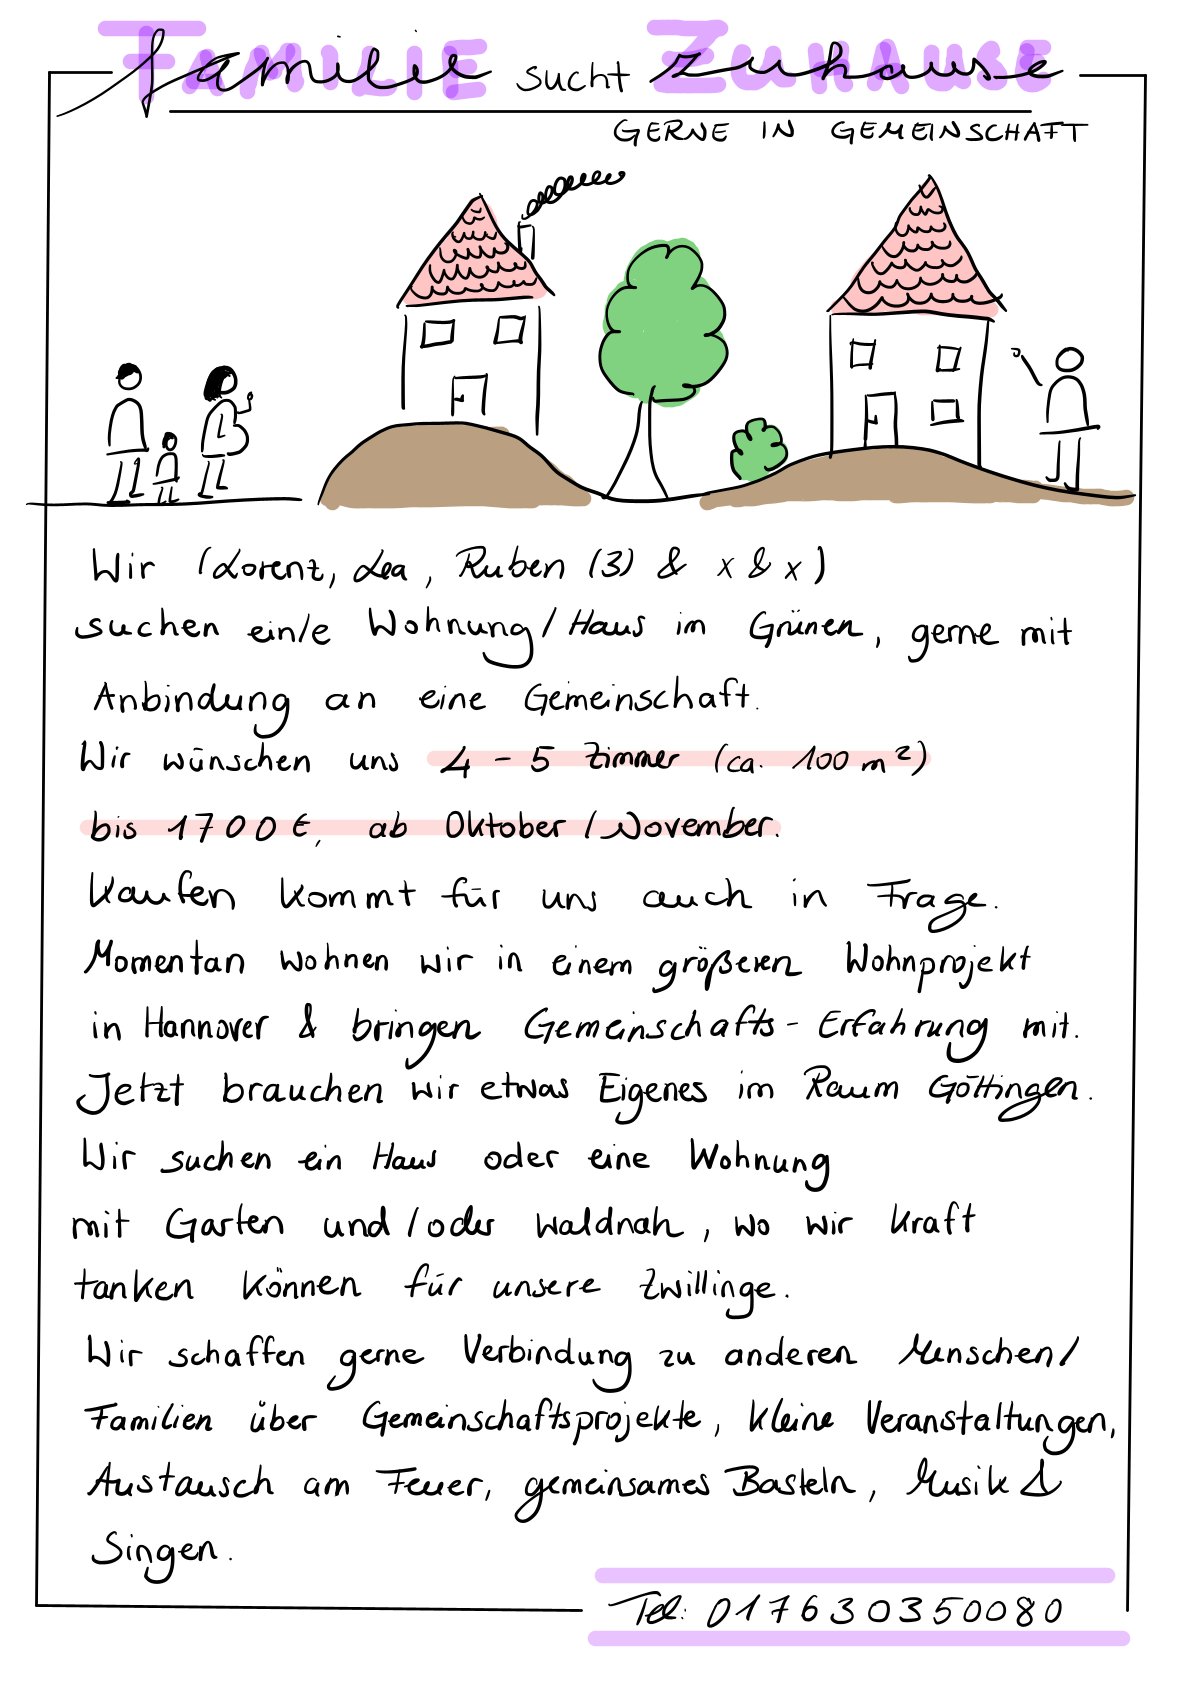 Familie sucht Zuhause
GERNE IN GEMEINSCHAFT
Wir (Lorenz, Lea, Ruben (3) & x & x)
suchen ein/e Wohnung/Haus im Grünen, gerne mit
Anbindung an eine Gemeinschaft.
Wir wünschen uns 4-5 Zimmer (ca. 100 m²)
bis 1700€, ab Oktober/November.
Kaufen kommt für uns auch in Frage.
Momentan wohnen wir in einem größeren Wohnprojekt
in Hannover & bringen Gemeinschafts-Erfahrung mit.
Jetzt brauchen wir etwas Eigenes im Raum Göttingen.
Wir suchen ein Haus oder eine Wohnung
mit Garten und/oder waldnah, wo wir Kraft
tanken können für unsere Zwillinge.
Wir schaffen gerne Verbindung zu anderen Menschen/
Familien über Gemeinschaftsprojekte, kleine Veranstaltungen,
Austausch am Feuer, gemeinsames Basteln, Musik &
Singen.
Tel: 017630350080